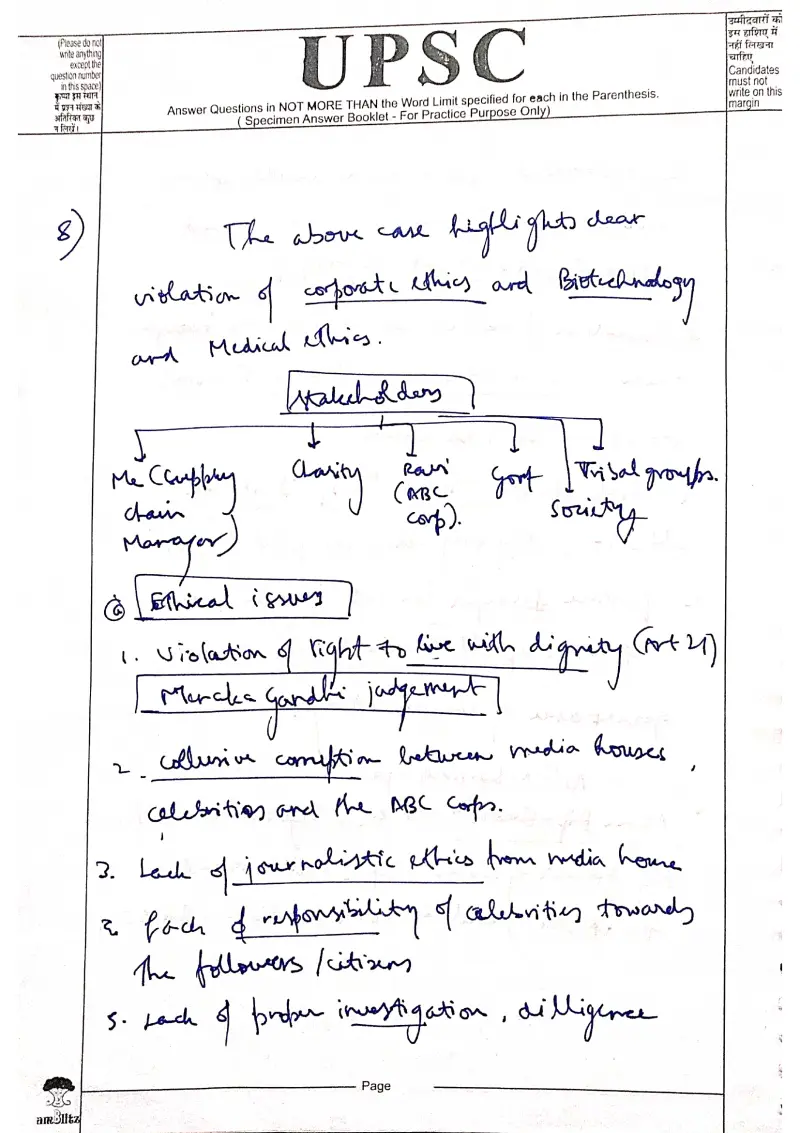 (Please do not
write anything
except the
question number
in this space)
कृपया इस स्थान
में प्रश्न संख्या के
अतिरिक्त कुछ
न लिखें।
UPSC
Answer Questions in NOT MORE THAN the Word Limit specified for each in the Parenthesis.
( Specimen Answer Booklet - For Practice Purpose Only)
उम्मीदवारों को
इस हाशिए में
नहीं लिखना
चाहिए
Candidates
must not
write on this
margin
8)
The above case highlights clear
violation of corporate ethics and Biotechnology
and Medical ethics.
Stakeholders
Me (Supply
chain
Manager)
Charity
Ravi
(ABC
Corp).
Govt
Society
Tribal groups.
a
Ethical issues
1. Violation of right to live with dignity (Art 21)
Maneka Gandhi judgement
2. Collusive corruption between media houses,
celebrities and the ABC Corps.
3. Lack of journalistic ethics from media house
Lack of responsibility of celebrities towards
the followers/citizens
5. Lack of proper investigation, dilligence
Page